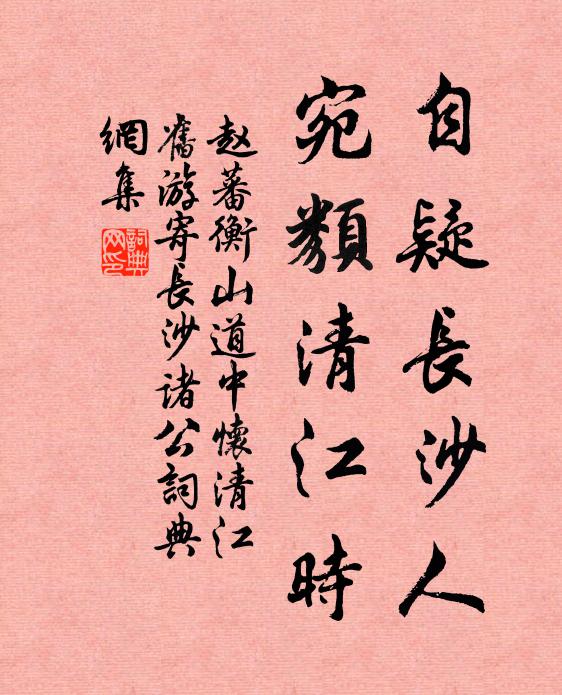 自疑長沙人
宛類清江時
赵蕃衡山道中懷清江
舊游寄長沙诸公詞典
網集
詞典
网印